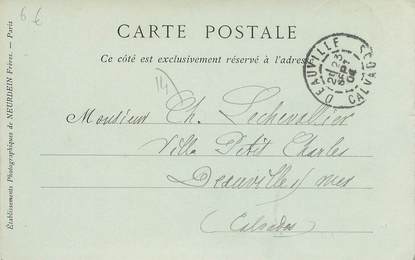 6 €
CARTE POSTALE
Ce côté est exclusivement réservé à l'adresse
DEAUVILLE
CALVADOS
23
SEPT
04
14
Monsieur Ch. Lechevallier
Villa Petit Charles
Deauville s/ mer
(Calvados)
Etablissements Photographiques de NEURDEIN Frères. — Paris